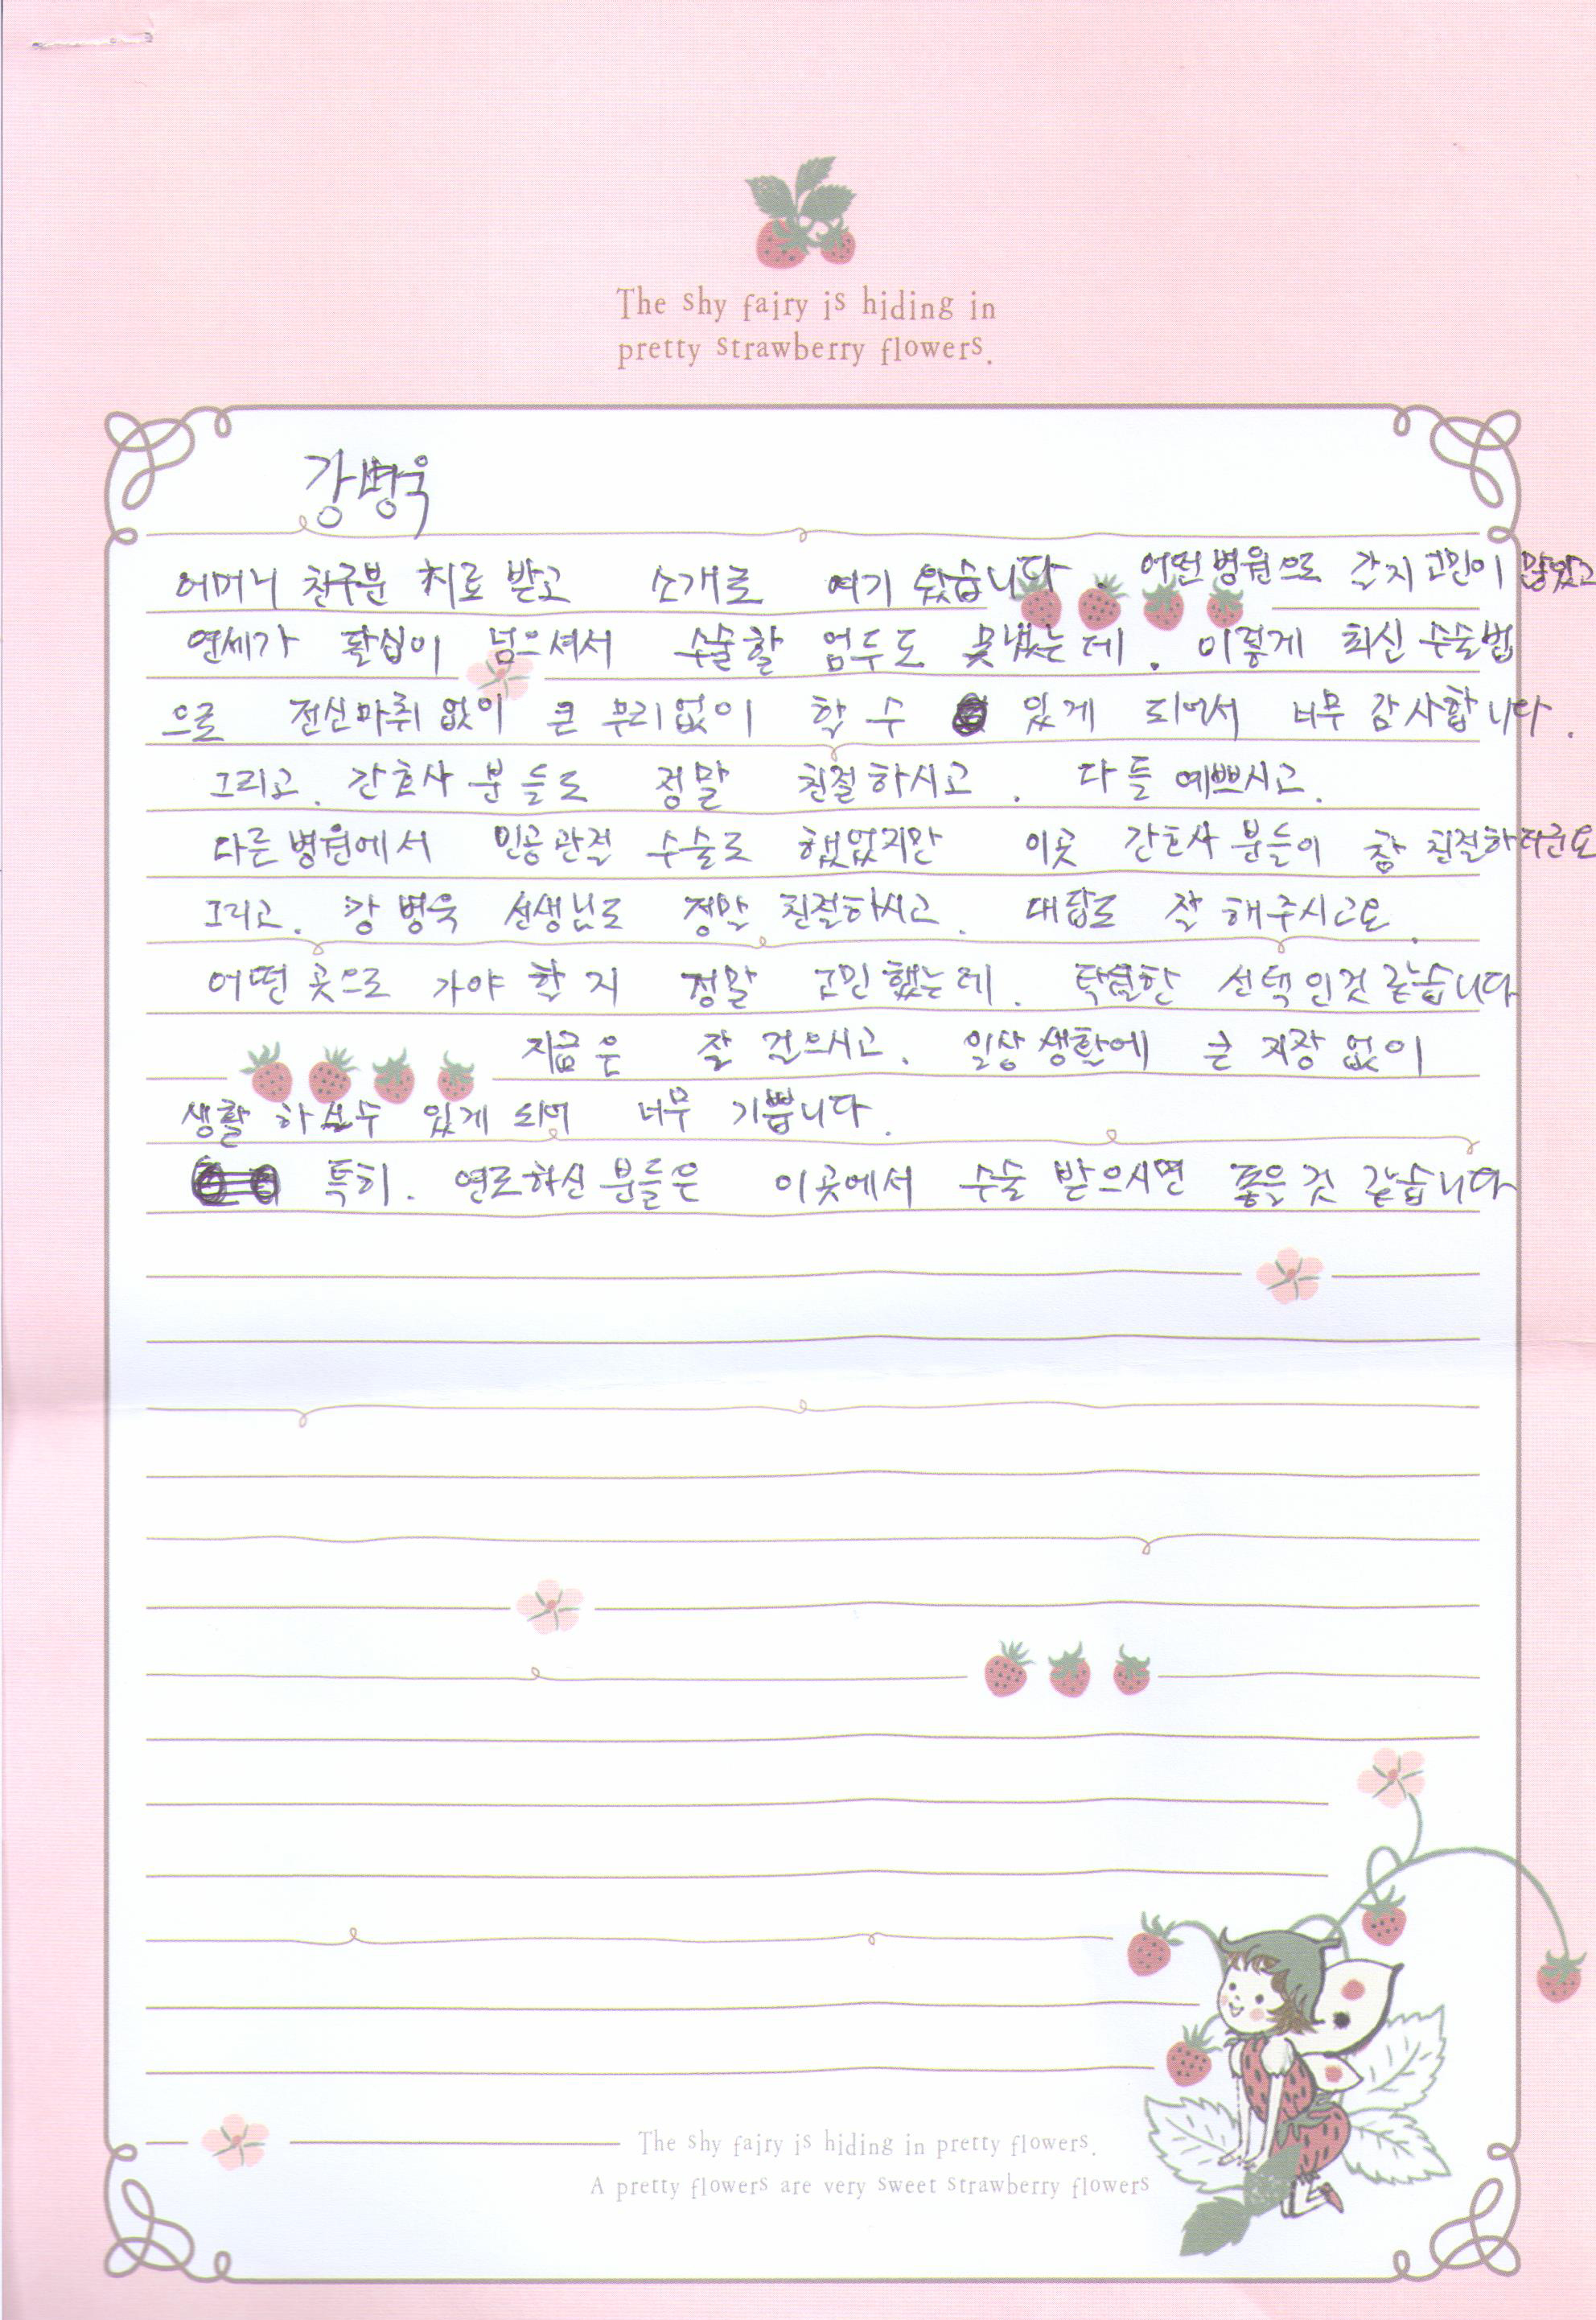 The shy fairy is hiding in
pretty strawberry flowers.
강병욱
어머니 친구분 치료 받고 소개로 여기 왔습니다. 어떤병원으로 갈지 고민이 많았고
연세가 팔십이 넘으셔서 수술할 엄두도 못냈는데. 이렇게 최신 수술법
으로 전신마취 없이 큰 무리없이 할 수 있게 되어서 너무 감사합니다.
그리고. 간호사 분들도 정말 친절하시고. 다들 예쁘시고.
다른병원에서 인공관절 수술도 했었지만 이곳 간호사 분들이 참 친절하더군요
그리고. 강병욱 선생님도 정말 친절하시고. 대답도 잘 해주시고요.
어떤 곳으로 가야 할 지 정말 고민했는데. 탁월한 선택인것 같습니다
지금은 잘 걸으시고. 일상생활에 큰 지장 없이
생활 하실수 있게 되어 너무 기쁩니다.
특히. 연로하신 분들은 이곳에서 수술 받으시면 좋을 것 같습니다
The shy fairy is hiding in pretty flowers.
A pretty flowers are very sweet strawberry flowers